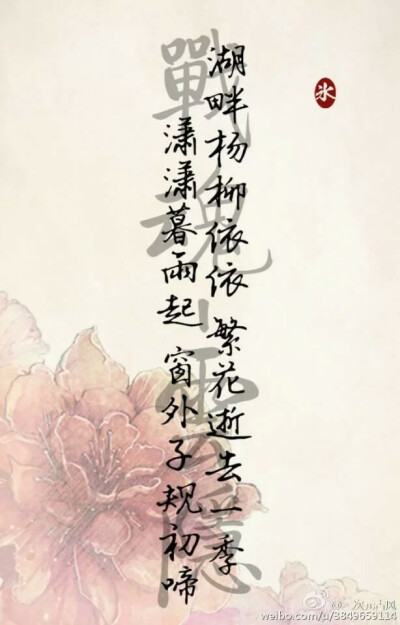 氷
湖畔杨柳依依 繁花逝去一季
潇潇暮雨起 窗外子规初啼
戰魂小雲隱
weibo.com/u/3849659114